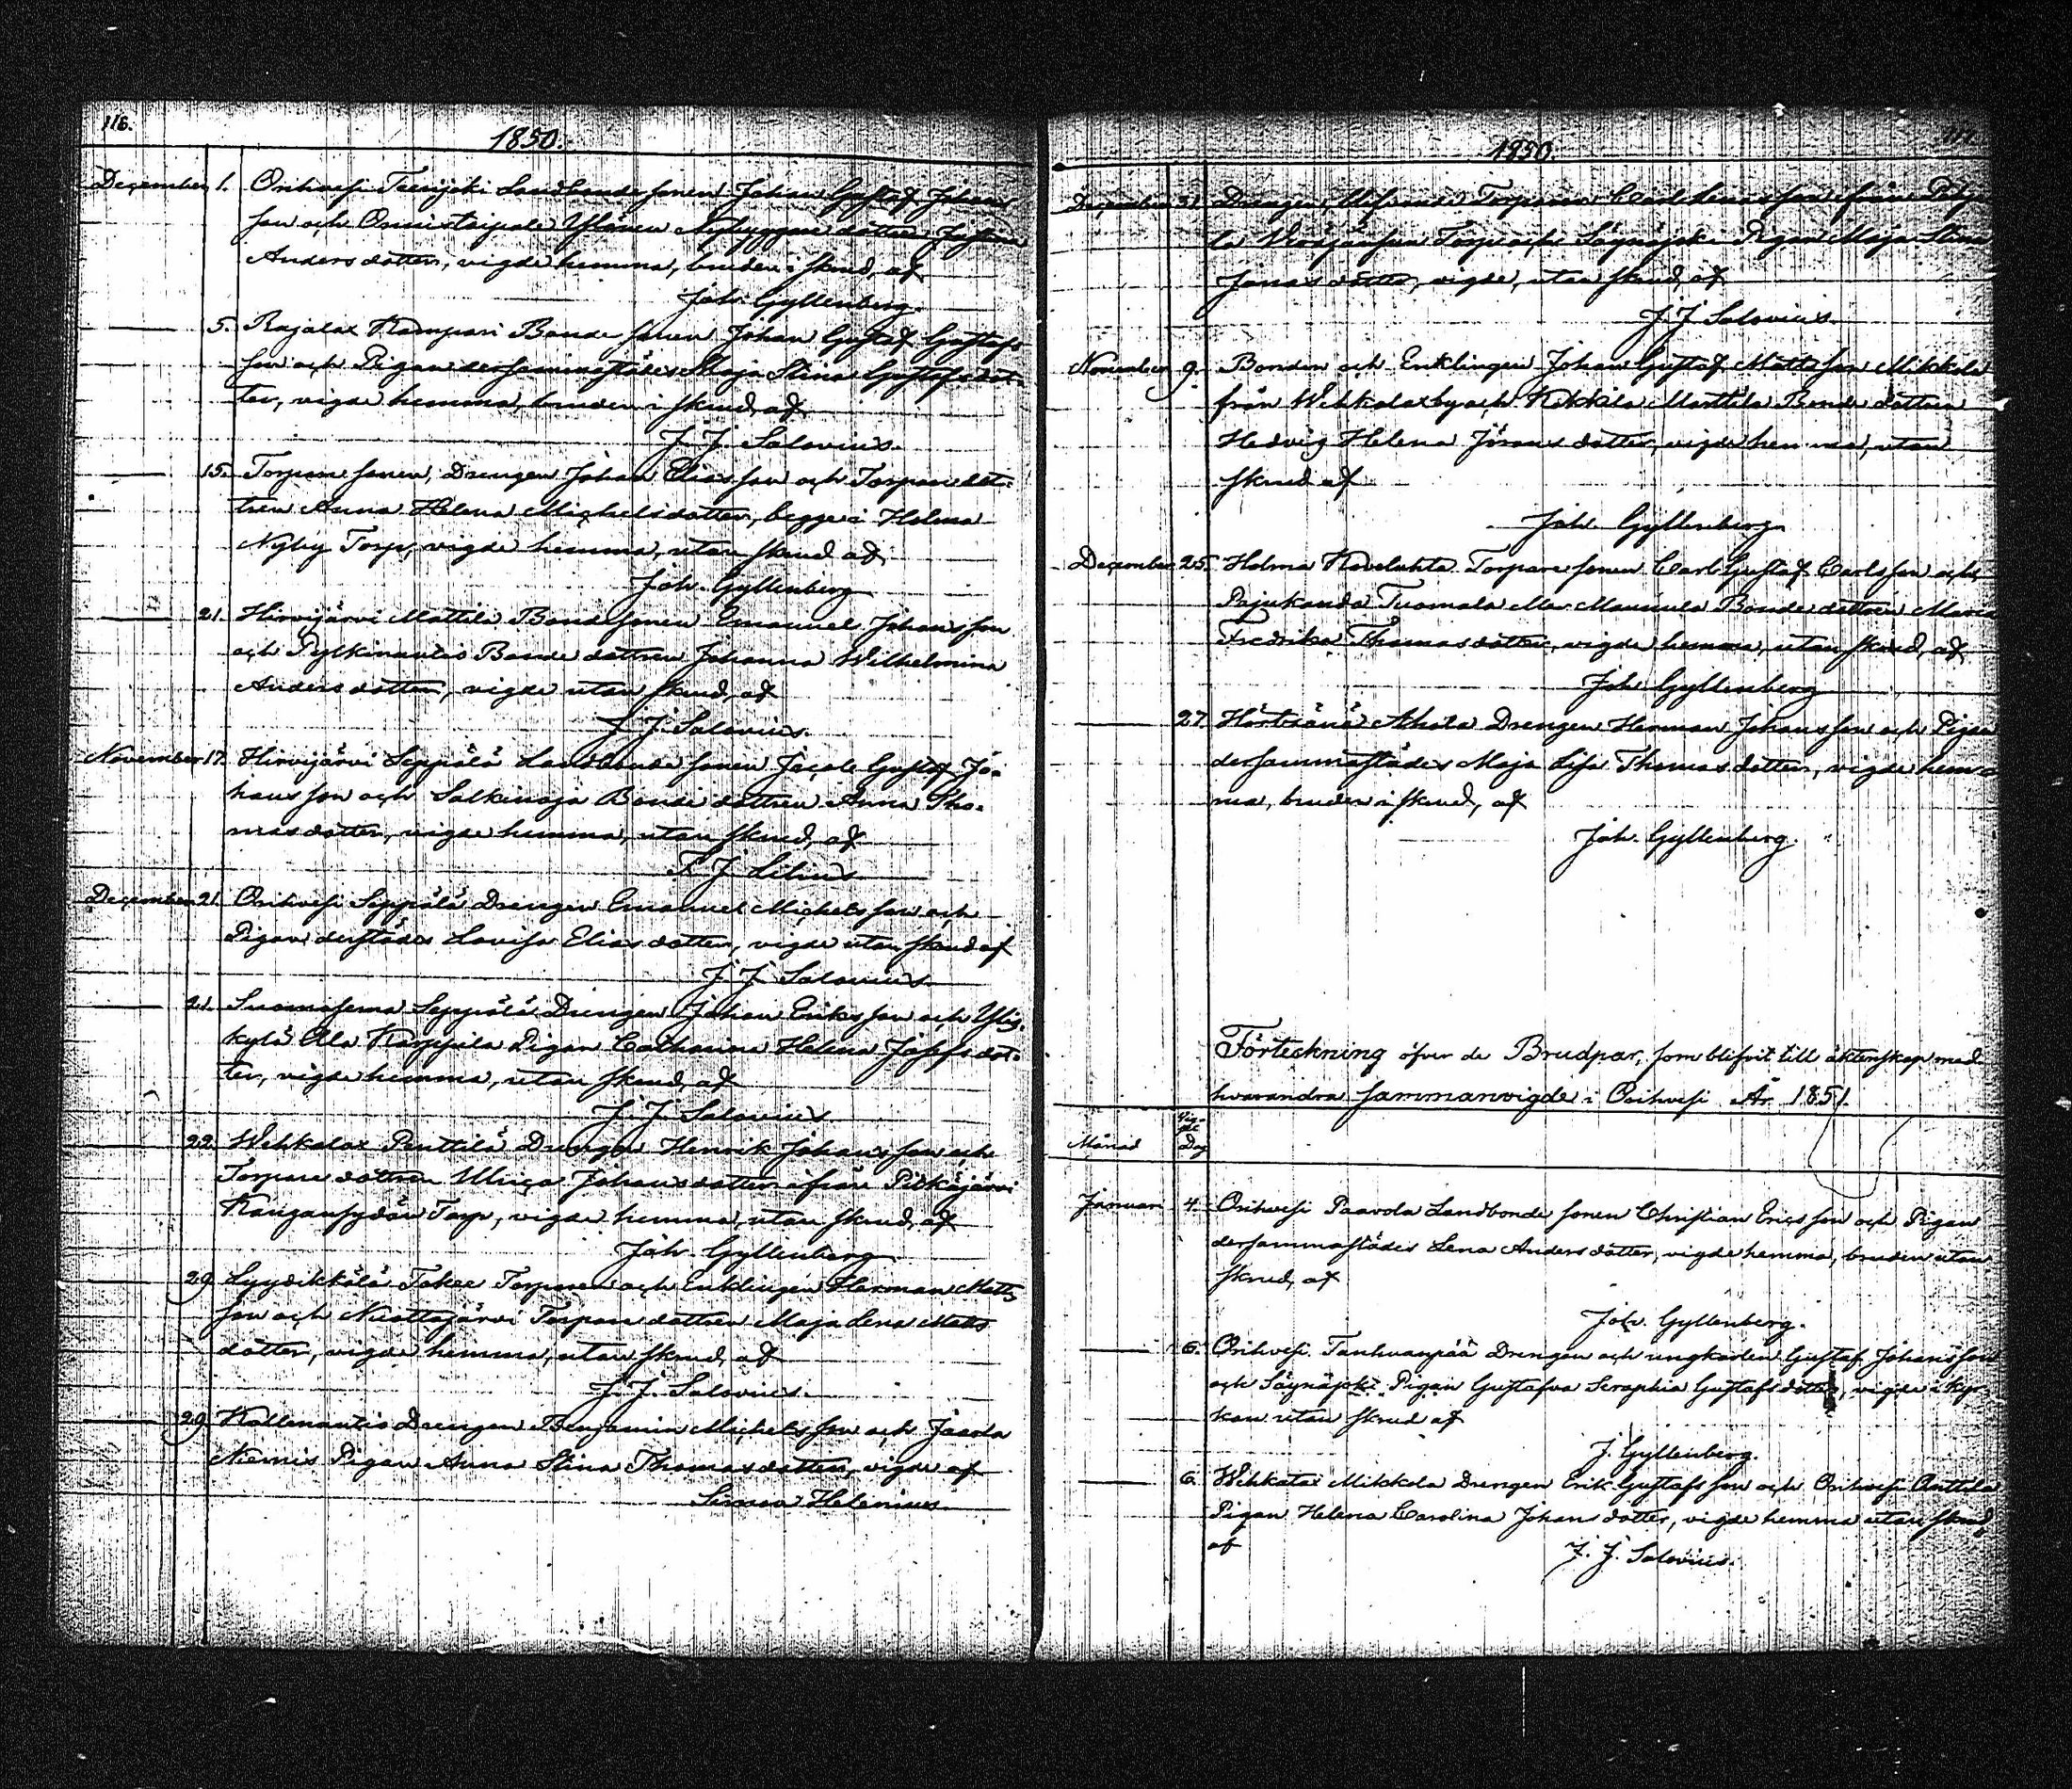 116.
1850.
December 1. Orihvesi Teerijoki Landbonde sonen Johan Gustaf Johans
son och Onnistaipale Ylänen Nybyggare dottren
Anders dotter, vigde hemma, bruden i skrud, af
Joh. Gyllenberg.
5. Rajalax Kampari Bonde sonen Johan Gustaf Gustafs
son och Pigan dersammastädes Maja Stina Gustafs dot-
ter, vigde hemma, bruden i skrud, af
J. J. Salovius.
15. Torpare sonen, Drengen Johan Elias son och Torpare dot-
tren Anna Helena Michelsdotter, begge i Holma
Nyby Torp, vigde hemma, utan skrud af
Joh. Gyllenberg
21. Hirvijärvi Mattila Bonde sonen Emanuel Johans son
och Pylkinautio Bonde dottren Johanna Wilhelmina
Anders dotter, vigde utan skrud, af
J. J. Salovius.
November 17. Hirvijärvi Seppälä Landbonde sonen Jacob Gustaf Jo-
hans son och Salkinoja Bonde dottren Anna Tho-
mas dotter, vigde hemma, utan skrud, af
F. J. Lilius
December 21. Orihvesi Seppälä Drengen Emanuel Michels son och
Pigan derstädes Lovisa Elias dotter, vigde utan skrud af
J. J. Salovius.
21. Suomasema Seppälä Drengen Johan Eriks son och Yliss-
kylä Ala Karppila Pigan Catharina Helena Josefs dot-
ter, vigde hemma, utan skrud, af
J. J. Salovius.
22. Wehkalax Penttilä Drengen Henrik Johans son och
Torpare dottren Ulrica Johans dotter ifrån Pitkäjärvi
Kangansydän Torp, vigde hemma, utan skrud, af
Joh. Gyllenberg
29. Lyydikkälä Tokee Torparen och Enklingen Herman Matts
son och Nuottajärvi Torpare dottren Maja Lena Matts
dotter, vigde hemma, utan skrud, af
J. J. Salovius.
29. Kollenautio Drengen Benjamin Michels son och Jaavla
Niemis Pigan Anna Stina Thomas dotter, vigde af
Simon Helenius.
117.
1850.
December 31. Drengen, Torparen Carl son ifrån
Torp och Säynäjoki Pigan Maja Stina
Jonas dotter, vigde, utan skrud, af
J. J. Salovius.
November 9. Bonden och Enklingen Johan Gustaf Matts son Mikkola
från Wehkalax by och Kokkila Marttila Bonde dottren
Hedvig Helena Jörans dotter, vigde hemma, utan
skrud af
Joh. Gyllenberg.
December 25. Holma Kovelahta Torpare sonen Carl Gustaf Carls son och
Pajukanda Tuomala Bonde dottren Maria
Fredrika Thomas dotter, vigde hemma, utan skrud, af
Joh. Gyllenberg
27. Ahola Drengen Herman Johans son och Pigan
dersammastädes Maja Lisa Thomas dotter, vigde hem-
ma, bruden i skrud, af
Joh. Gyllenberg.
Förteckning öfver de Brudpar, som blifvit till äktenskap med
hvarandra sammanvigde i Orihvesi År 1851.
Månad Dag
Januari 4. Orihvesi Paavola Landbonde sonen Christian Erics son och Pigan
dersammastädes Lena Anders dotter, vigde hemma, bruden utan
skrud, af
Joh. Gyllenberg.
6. Orihvesi Tanhuanpää Drengen och ungkarlen Gustaf Johans son
och Säynäjoki Pigan Gustafva Seraphia Gustafs dotter, vigde i kyr-
kan utan skrud af
J. Gyllenberg.
6. Wehkalax Mikkola Drengen Erik Gustafs son och Orihvesi Anttila
Pigan Helena Carolina Johans dotter, vigde hemma utan skrud,
af
J. J. Salovius.